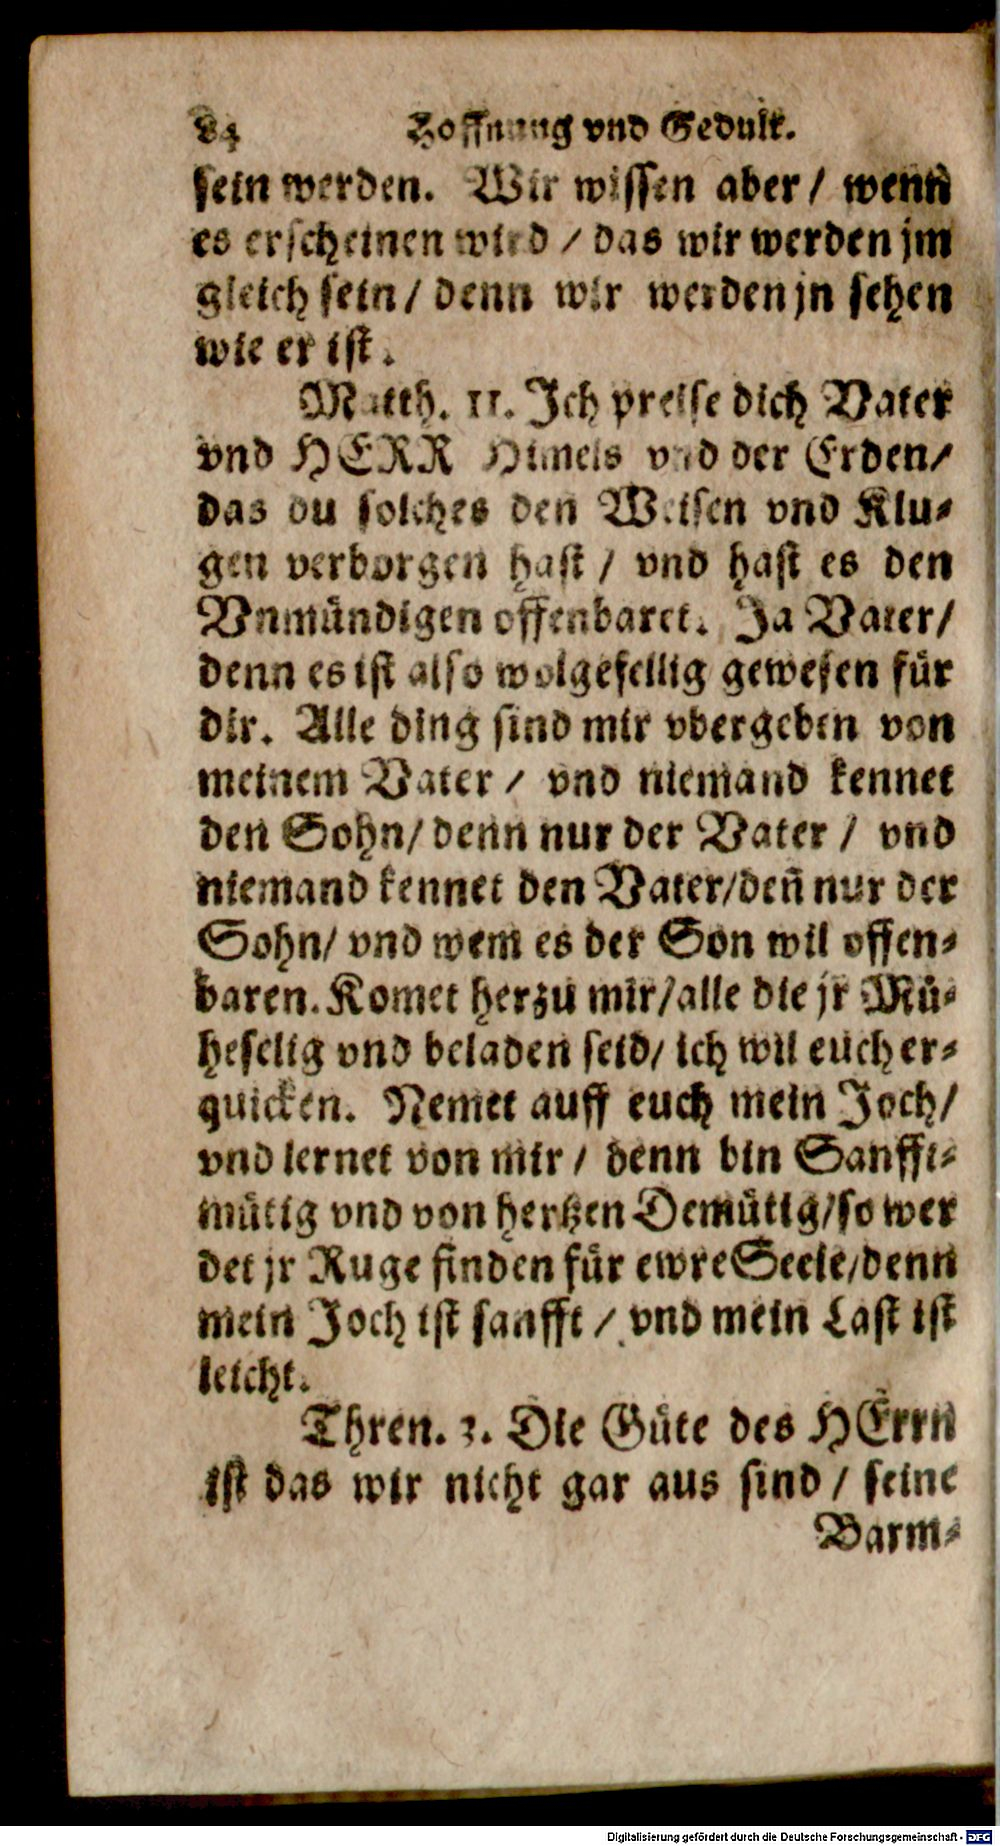 84 Hoffnung vnd Gedult.
sein werden. Wir wissen aber / wenn
es erscheinen wird / das wir werden jm
gleich sein / denn wir werden jn sehen
wie er ist.
Matth. 11. Ich preise dich Vater
vnd HERR Himels vnd der Erden /
das du solches den Weisen vnd Klu-
gen verborgen hast / vnd hast es den
Vnmündigen offenbaret. Ja Vater /
denn es ist also wolgefellig gewesen für
dir. Alle ding sind mir vbergeben von
meinem Vater / vnd niemand kennet
den Sohn / denn nur der Vater / vnd
niemand kennet den Vater / deñ nur der
Sohn / vnd wem es der Son wil offen-
baren. Komet herzu mir / alle die jr Mü-
heselig vnd beladen seid / ich wil euch er-
quicken. Nemet auff euch mein Joch /
vnd lernet von mir / denn bin Sanfft-
mütig vnd von hertzen Demütig / so wer
det jr Ruge finden für ewre Seele / denn
mein Joch ist sanfft / vnd mein Last ist
leicht.
Thren. 3. Die Güte des HErrn
ist das wir nicht gar aus sind / seine
Barm-
Digitalisierung gefördert durch die Deutsche Forschungsgemeinschaft - DFG